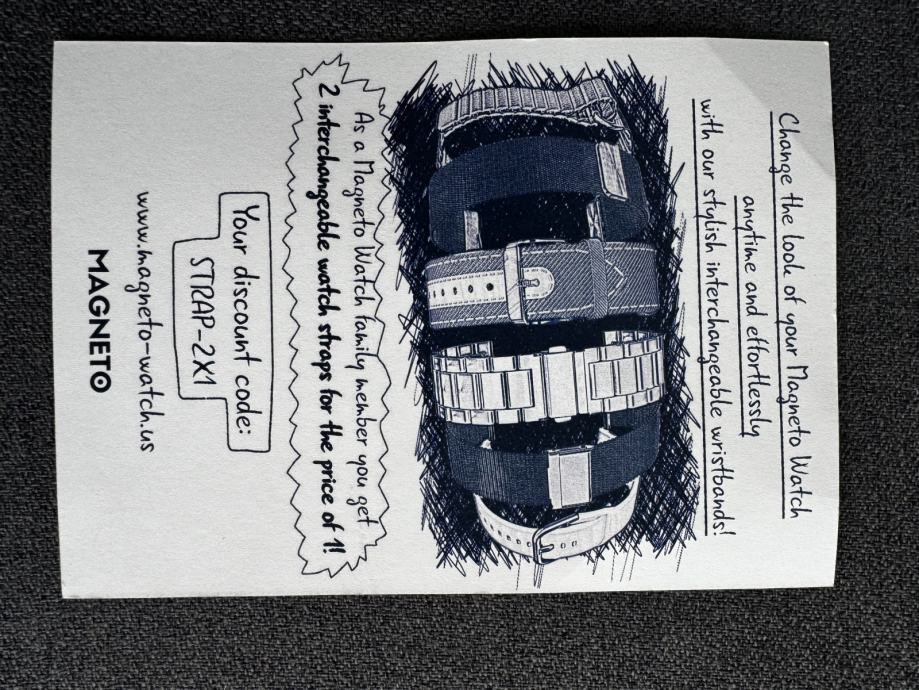 Change the look of your Magneto Watch
anytime and effortlessly
with our stylish interchangeable wristbands!
As a Magneto Watch family member you get
2 interchangeable watch straps for the price of 1!
Your discount code:
STRAP-2X1
www.magneto-watch.us
MAGNETO